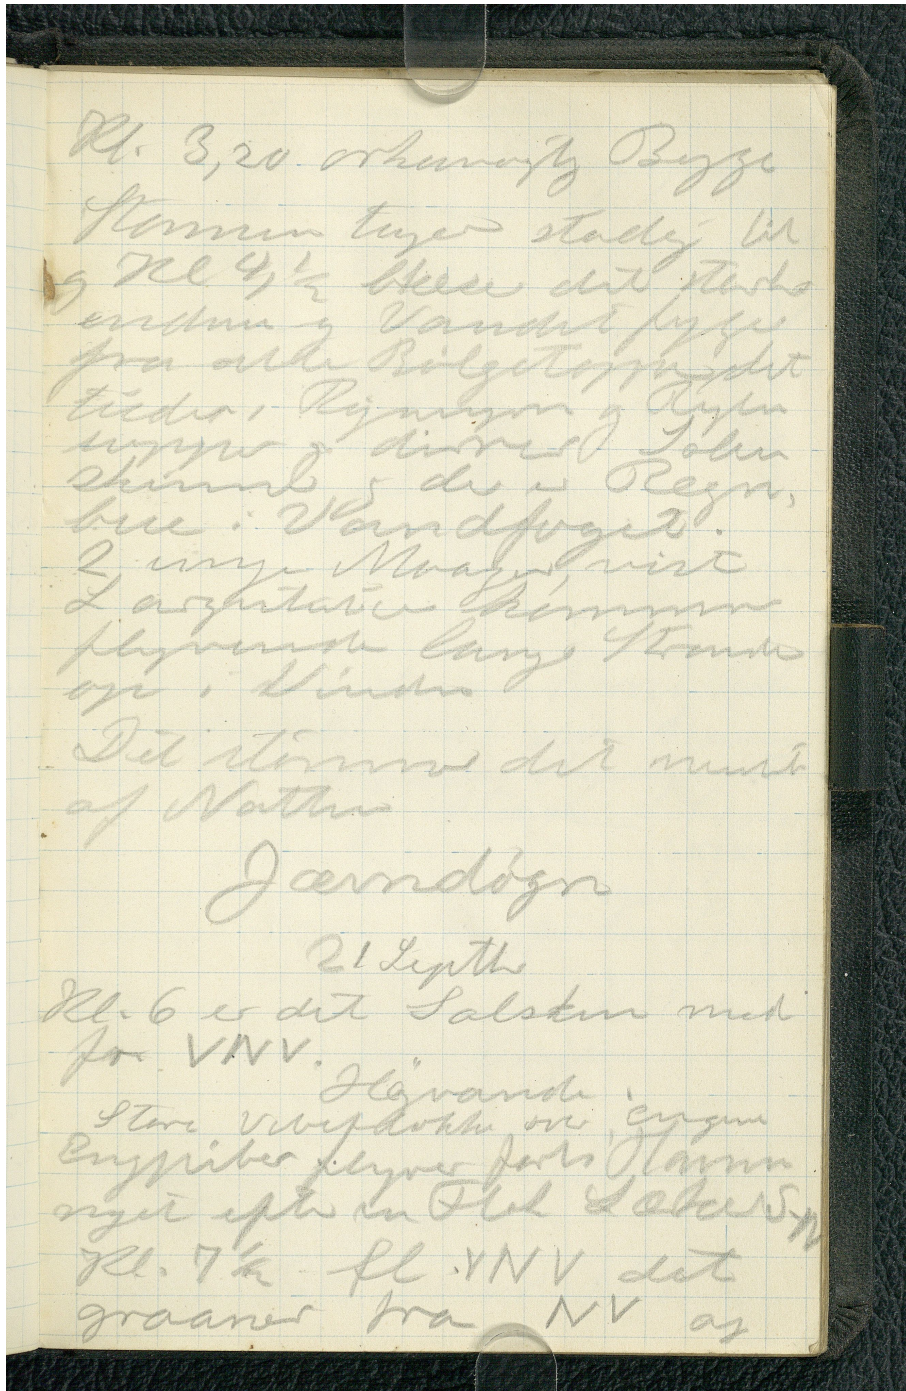 Kl. 3,20 orkanagtig Bygge
Stormen tager stadig til
og Kl 4 1/2 blæser det stærkt
endnu og Vandet fyger
fra alle Bølgetoppe, det
tuder i Rigningen og
og dirrer Solen
skinner og der er Regn-
bue i Vandfoget.
2 unge Maager, vist
L argentatus kommer
flyvende langs Stranden
op i Vinden
Det stormer det meste
af Natten
Jævndøgn
21 Septbr
Kl. 6 er det Solskin med
for VNV.
Høvande
Store Vibeflokke over Engene
Engpiber flyver forbi Havnen
nget efter en Flok Lærker S-N
Kl. 7 1/2 fl VNV det
graaner fra NV og